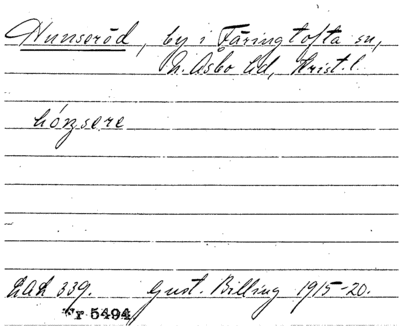 Hunseröd, by i Färingtofta sn,
N. Åsbo hd, Krist. l.
hónsere
LAL 339. Gust. Billing 1915-20.
Fr 5494